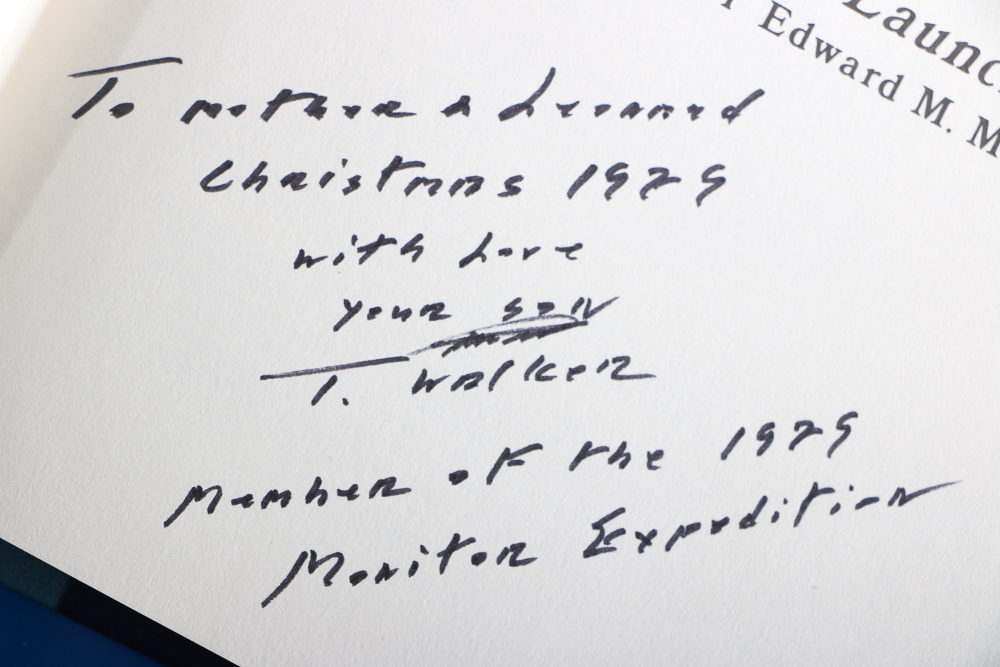 Launc
Edward M. M
To mother & Leonard
Christmas 1979
with Love
your son
T. Walker
Member of the 1979
Monitor Expedition